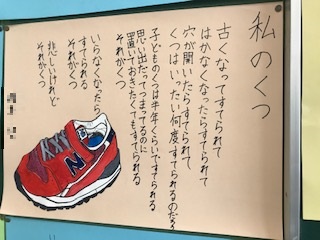 私のくつ
古くなってすてられて
はかなくなったらすてられて
穴が開いたらすてられて
くつはいったい何度すてられるのだろう
子どものくつは半年くらいですてられる
思い出だってつまってるのに
置いておきたくてもすてられる
それがくつ
いらなくなったら
すてられる
それがくつ
悲しいけれど
それがくつ
N